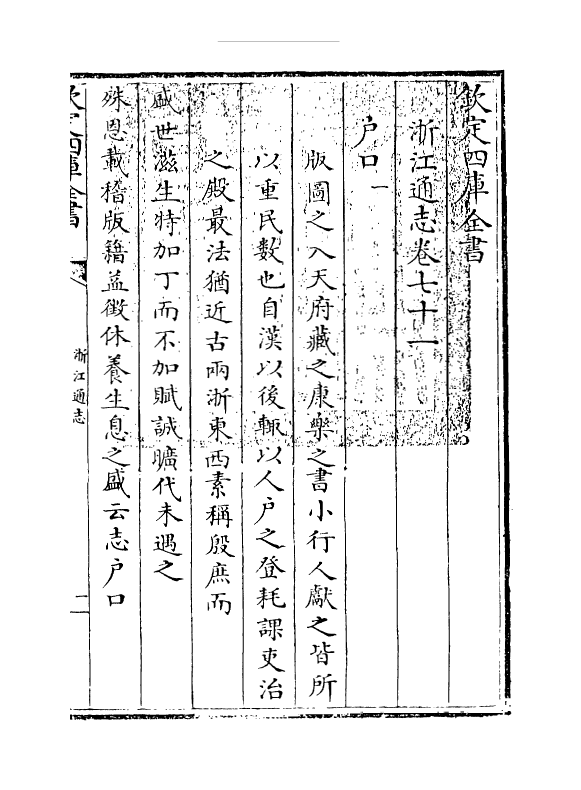 欽定四庫全書
浙江通志卷七十一
户口一
版圖之入天府藏之康樂之書小行人獻之皆所
以重民數也自漢以後輒以人户之登耗課吏治
之殿最法猶近古兩浙東西素稱殷庶而
盛世滋生特加丁而不加賦誠曠代未遇之
殊恩載稽版籍益徴休養生息之盛云志户口
欽定四庫全書
浙江通志